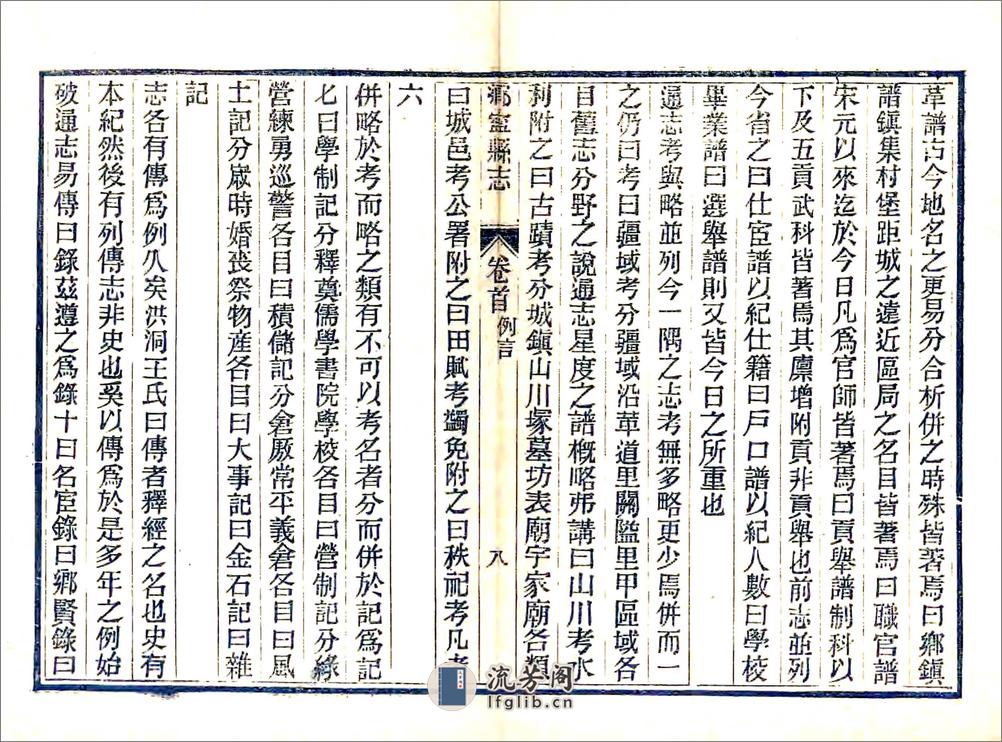 革譜古今地名之更易分合析併之時殊皆著焉曰鄉鎮
譜鎮集村堡距城之遠近區局之名目皆著焉曰職官譜
宋元以來迄於今日凡為官師皆著焉曰貢舉譜制科以
下及五貢武科皆著焉其廩增附貢非貢舉也前志並列
今省之曰仕宦譜以紀仕籍曰戶口譜以紀人數曰學校
畢業譜曰選舉譜則又皆今日之所重也
通志考與略並列今一隅之志考無多略更少焉併而一
之仍曰考曰疆域考分疆域沿革道里關隘里甲區域各
目舊志分野之說通志星度之譜概略弗講曰山川考水
利附之曰古蹟考分城鎮山川塚墓坊表廟宇家廟各類
鄉寧縣志 卷首 例言 八
曰城邑考公署附之曰田賦考蠲免附之曰秩祀考凡考
六
併略於考而略之類有不可以考名者分而併於記為記
七曰學制記分釋奠儒學書院學校各目曰營制記分綠
營練勇巡警各目曰積儲記分倉廒常平義倉各目曰風
土記分歲時婚喪祭物產各目曰大事記曰金石記曰雜
記
志各有傳為例久矣洪洞王氏曰傳者釋經之名也史有
本紀然後有列傳志非史也奚以傳為於是多年之例始
破通志易傳曰錄茲遵之為錄十曰名宦錄曰鄉賢錄曰
流芳阁
lfglib.cn